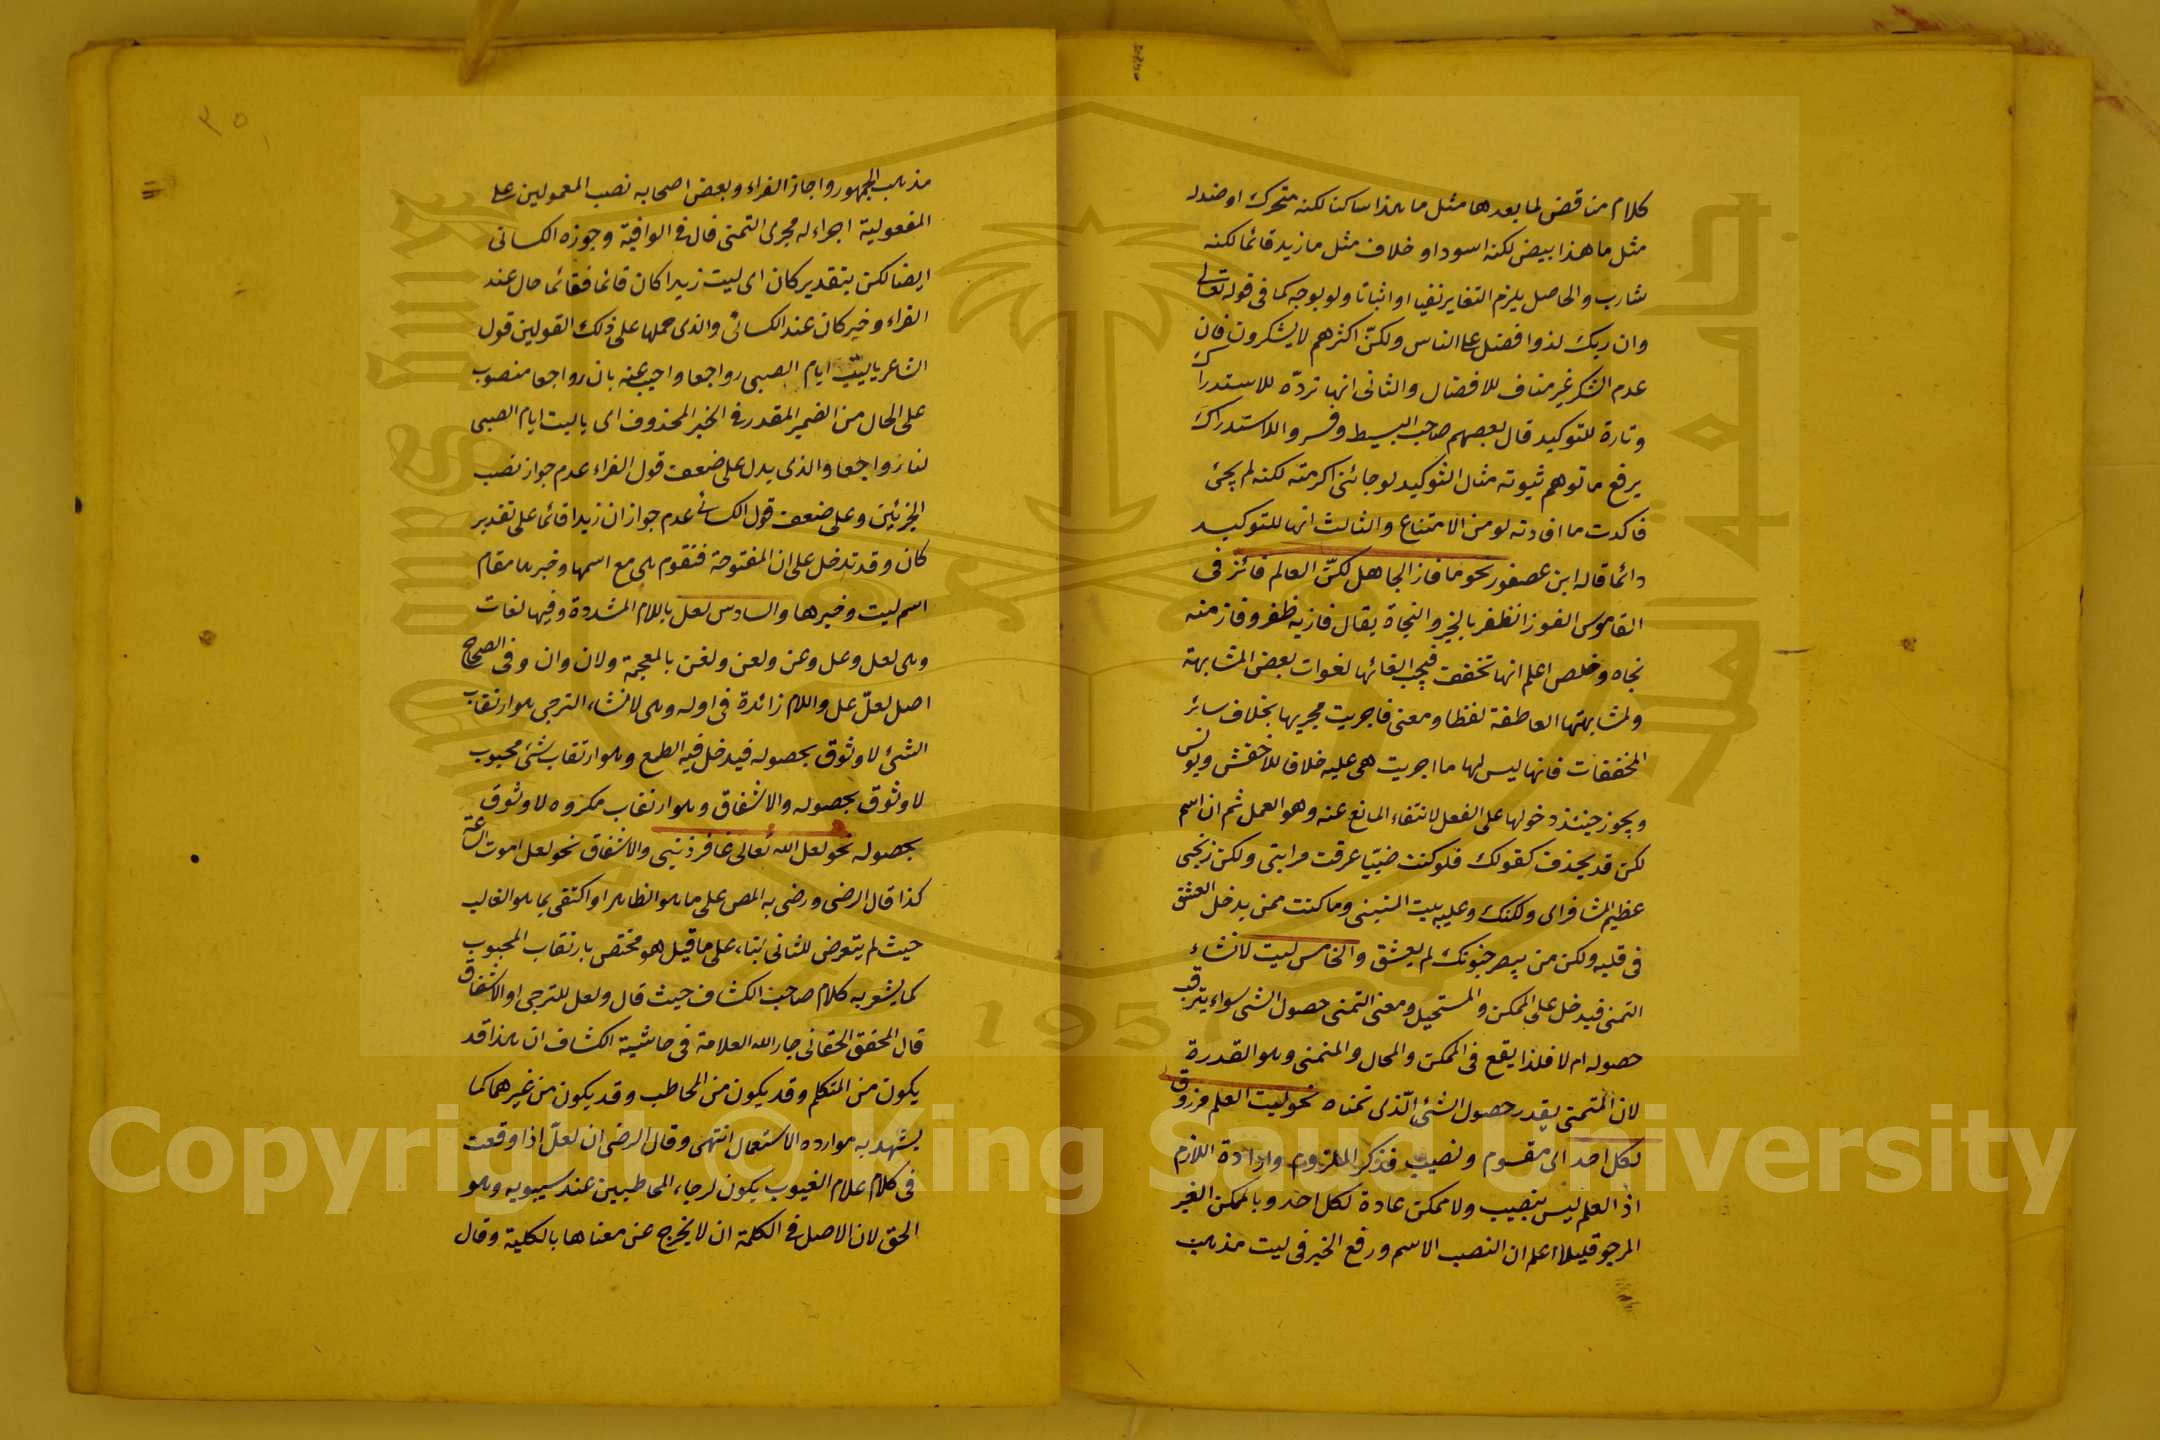 كلام مناقض لما بعدها مثل ما هذا ساكنا لكنه متحرك او ضد له
مثل ما هذا ابيض لكنه اسود او خلاف مثل ما زيد قائما لكنه
شارب والحاصل يلزم التغاير نفيا او اثباتا ولو بوجه كما فى قوله تعالى
وان ربك لذوا فضل على الناس ولكنّ اكثرهم لا يشكرون فان
عدم الشكر غير مناف للافضال والثانى انها تردّه للاستدراك
وتارة للتوكيد قال بعصهم صاحب البسيط وفسروا الاستدراك
يرفع ما توهم ثبوته مثال التوكيد لو جائنى اكرمته لكنه لم يجئ
فاكدت ما افادته لو من الامتناع والثالث انها للتوكيد
دائما قاله ابن عصفور نحو ما فاز الجاهل لكنّ العالم فائز فى
القاموس الفوز الظفر بالخير والنجاة يقال فاز به ظفر وفاز منه
نجاه وخلص اعلم انها تخفف فيجب الغائها لفوات بعض المشابهة
ولمشابهتها العاطفة لفظا ومعنى فاجريت مجريها بخلاف سائر
المخففات فانها ليس لها ما اجريت هى عليه خلافا للاخفش ويونس
ويجوز حينئذ دخولها على الفعل لانتفاء المانع عنه وهو العمل ثم ان اسم
لكن قد يحذف كقولك فلو كنت ضبّيا عرفت قرابتى ولكن زنجى
عظيم المشافر اى ولكنك وعليه بيت المتنبى وما كنت ممن يدخل العشق
فى قلبه ولكن من يبصر جنونك لم يعشق والخامس ليت لانشاء
التمنى فيدخل على الممكن والمستحيل ومعنى التمنى حصول الشى سواء يترقب
حصوله ام لا فلذا يقع فى الممكن والمحال والمتمنى وهو القدرة
لان المتمنى يقدر حصول الشئ الّذى تمناه نحو ليت العلم مرزوق
لكل احد اى مقسوم ونصيب فذكر الملزوم وارادة اللازم
اذ العلم ليس بنصيب ولا ممكن عادة لكل احد وبالممكن الغير
المرجو قليلا اعلم ان النصب الاسم ورفع الخبر فى ليت مذهب
٣٥
مذهب الجمهور واجاز الفراء وبعض اصحابه نصب المعمولين على
المفعولية اجراء له مجرى التمنى قال فى الوافية وجوزه الكسائى
ايضا لكن بتقدير كان اى ليت زيدا كان قائما فقائما حال عند
الفراء وخبر كان عند الكسائى والذى حملها على ذلك القولين قول
الشاعر يا ليت ايام الصبى رواجعا واجيب عنه بان رواجعا منصوب
على الحال من الضمير المقدر فى الخبر المحذوف اى يا ليت ايام الصبى
لنا رواجعا والذى يدل على ضعف قول الفراء عدم جواز نصب
الجزئين وعلى ضعف قول الكسائى عدم جواز ان زيدا قائما على تقدير
كان وقد تدخل على ان المفتوحة فتقوم هى مع اسمها وخبرها مقام
اسم ليت وخبرها والسادس لعل باللام المشددة وفيها لغات
وهى لعل وعل وعن ولعن ولغن بالمعجمة ولان وان وفى الصحاح
اصل لعلّ عل واللام زائدة فى اوله وهى لانشاء الترجى هو ارتقاب
الشئ لا وثوق بحصوله فيدخل فيه الطمع وهو ارتقاب شئ محبوب
لا وثوق بحصوله والاشفاق وهو ارتقاب مكروه لا وثوق
بحصوله نحو لعل الله تعالى غافر ذنبى والاشفاق نحو لعل اموت الساعة
كذا قال الرضى ورضى به المص على ما هو الظاهر او اكتفى بما هو الغالب
حيث لم يتعرض للثانى بناء على ما قيل هو مختص بارتقاب المحبوب
كما يشعر به كلام صاحب الكشاف حيث قال ولعل للترجى او الاشفاق
قال المحقق الحقانى جار الله العلامة فى حاشية الكشاف ان هذا قد
يكون من المتكلم وقد يكون من المخاطب وقد يكون من غيرهما كما
يشهد به موارده الاستعمال انتهى وقال الرضى ان لعلّ اذا وقعت
فى كلام علام الغيوب يكون لرجاء المخاطبين عند سيبويه وهو
الحق لان الاصل فى الكلمة ان لا يخرج عن معناها بالكلية وقال
جامعة الملك سعود
King Saud University
1957
Copyright © King Saud University